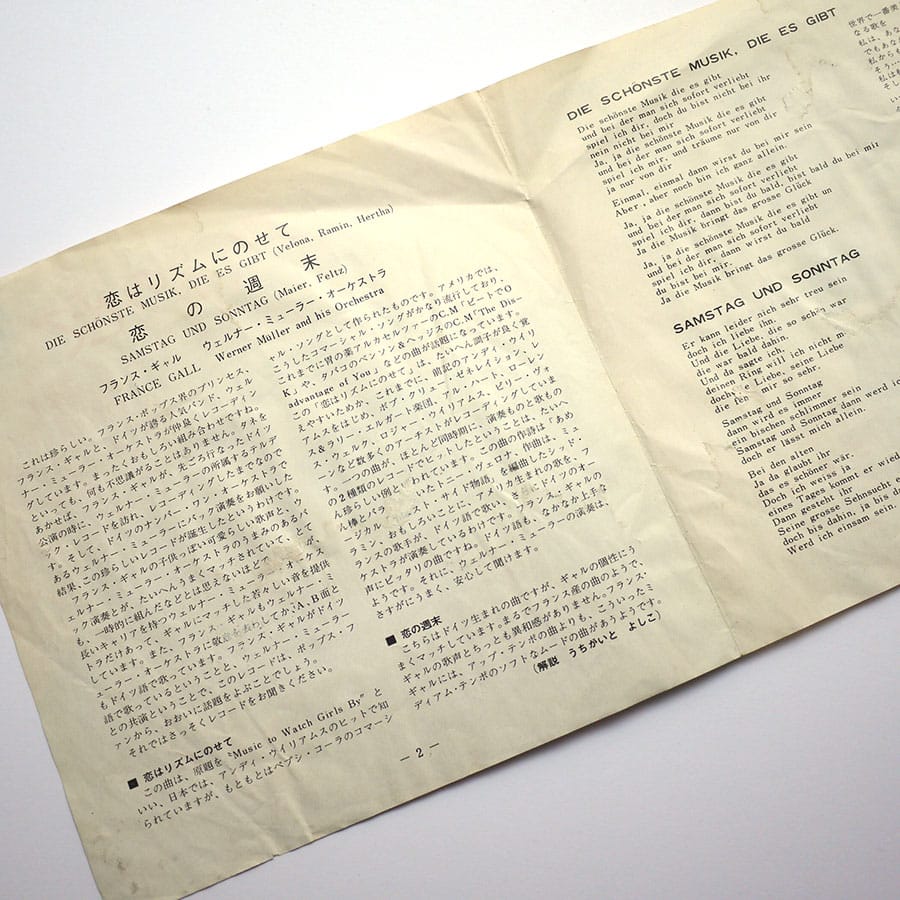 恋はリズムにのせて
DIE SCHÖNSTE MUSIK, DIE ES GIBT (Velona, Ramin, Hertha)
恋の週末
SAMSTAG UND SONNTAG (Maier, Feltz)
フランス・ギャル ウェルナー・ミューラー・オーケストラ
FRANCE GALL Werner Müller and his Orchestra
これは珍らしい。フランス・ポップス界のプリンセス、
フランス・ギャルと、ドイツが誇る人気バンド、ウェル
ナー・ミューラー・オーケストラが仲良くレコーディン
グしています。まったくおもしろい組み合わせですね。
といっても、何も不思議がることはありません。タネを
あかせば、フランス・ギャルが、先ごろ行なったドイツ
公演の時に、ウェルナー・ミューラーの所属するテルデ
ック・レコードを訪れ、レコーディングしたまでなので
す。そして、ドイツのナンバー・ワン・オーケストラで
あるウェルナー・ミューラーにバック演奏をお願いした
結果、この珍らしいレコードが誕生したというわけです。
フランス・ギャルの子供っぽいが愛らしい歌声と、ウ
ェルナー・ミューラー・オーケストラのうまみのあるバ
ック演奏とが、たいへんうまくマッチされていて、とて
も、一時的に組んだなどとは思えないほどです。
長いキャリアを持つウェルナー・ミューラー・オーケス
トラだけあって、ギャルにマッチした若々しい音を提供
しています。また、フランス・ギャルもウェルナー・ミ
ューラー・オーケストラに敬意を表わしてか、A、B面と
もドイツ語で歌っています。フランス・ギャルがドイツ
語で歌っているということと、ウェルナー・ミューラー
との共演ということで、このレコードは、ポップス・フ
ァンから、おおいに話題をよぶことでしょう。
それではさっそくレコードをお聞きください。
■ 恋はリズムにのせて
この曲は、原題を "Music to Watch Girls By" と
いい、日本では、アンディ・ウイリアムスのヒットで知
られていますが、もともとはペプシ・コーラのコマーシ
ャル・ソングとして作られたものです。アメリカでは、
こうしたコマーシャル・ソングがかなり流行しており、
これまでに胃の薬アルカセルツァーのC.M「ビートでO
K」や、タバコのベンソン&ヘッジスのC.M「The Dis-
advantage of You」などの曲が話題になっています。
この「恋はリズムにのせて」は、たいへん調子が良く覚
えやすいためか、これまでに、前記のアンディ・ウイリ
アムスをはじめ、ボブ・クリュー・ゼネレイション、レ
ス&ラリー・エルガート楽団、アル・ハート、ローレン
ス・ウェルク、ロジャー・ウイリアムス、ビリー・ヴォ
ーンなど数多くのアーチストがレコーディングしていま
す。一つの曲が、ほとんど同時期に、演奏ものと歌もの
の2種類のレコードでヒットしたということは、たいへ
ん珍らしい例といわれています。この曲の作詞は「あめ
ランスの歌手が、ドイツ語で歌い、
ケストラが演奏しているわけです。
声にピッタリの曲ですね。ドイツ語も、なかなか上手な
ようです。それに、ウェルナー・ミューラーの演奏は、
さすがにうまく、安心して聞けます。
■ 恋の週末
こちらはドイツ生まれの曲ですが、ギャルの個性にう
まくマッチしています。まるでフランス産の曲のようで、
ギャルの歌声とちっとも異和感がありません。フランス・
ギャルには、アップ・テンポの曲よりも、こういったミ
ディアム・テンポのソフトなムードの曲があうようです。
(解説 うちかいと よしこ)
— 2 —
DIE SCHÖNSTE MUSIK, DIE ES GIBT
Die schönste Musik die es gibt
und bei der man sich sofort verliebt
spiel ich dir, doch du bist nicht bei ihr
nein nicht bei mir
Ja, ja die schönste Musik die es gibt
und bei der man sich sofort verliebt
spiel ich mir, und träume nur von dir
ja nur von dir
Einmal, einmal dann wirst du bei mir sein
Aber, aber noch bin ich ganz allein.
Ja, ja die schönste Musik die es gibt
und bei der man sich sofort verliebt
spiel ich dir, dann bist du bald, bist bald du bei mir
Ja die Musik bringt das grosse Glück
Ja, ja die schönste Musik die es gibt un
und bei der man sich sofort verliebt
spiel ich dir, dann wirst du bald
du bist bei mir,
Ja die Musik bringt das grosse Glück.
SAMSTAG UND SONNTAG
Er kann leider nich sehr treu sein
doch ich liebe ihn.
Und die Liebe, die so schön war
die war bald dahin.
Und da sagte ich,
deinen Ring will ich nicht m
doch die Liebe, seine Liebe
die bi mir so sehr.
Samstag und Sonntag
dann wird es immer
ein bischen schlimmer sein
Samstag und Sonntag dann werd ic
doch er lässt mich allein.
Bei den alten
Ja da glaubt ihr
das es schöner wär.
Doch ich weiss ja
eines Tages kommt er wied
Dann gesteht ihr
Seine grosse Sehnsucht e
doch bis dahin, ja bis da
Werd ich einsam sein.
世界で一番美
なる歌を
私は、あな
でもあな
私からも
そう…
私は